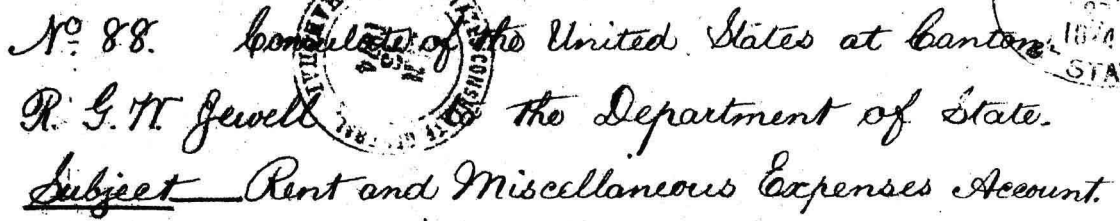 Nº 88. Consulate of the United States at Canton.
R. G. W. Jewell To the Department of State.
Subject Rent and Miscellaneous Expenses Account.
1874
STA